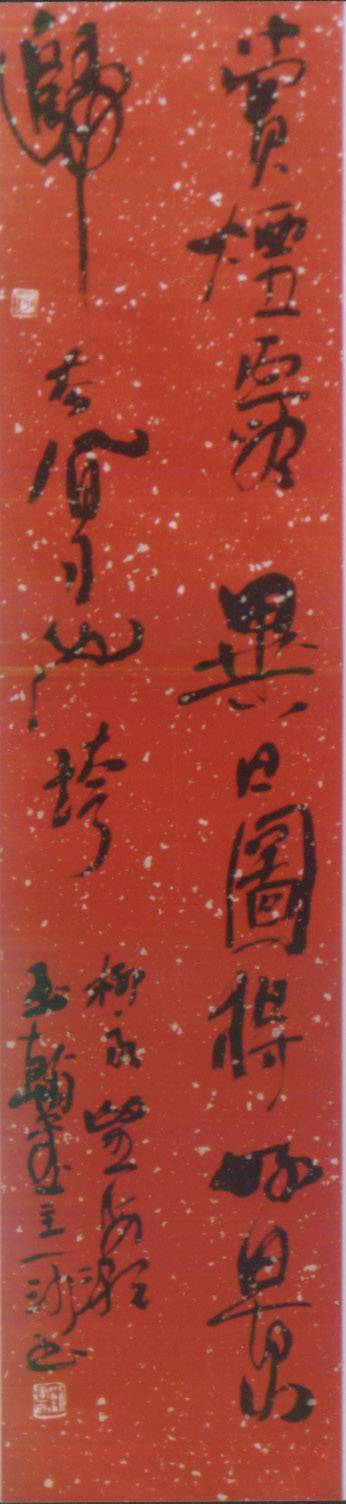 賞煙霞異日圖將好景
歸去鳳池誇
柳永望海潮
主一書